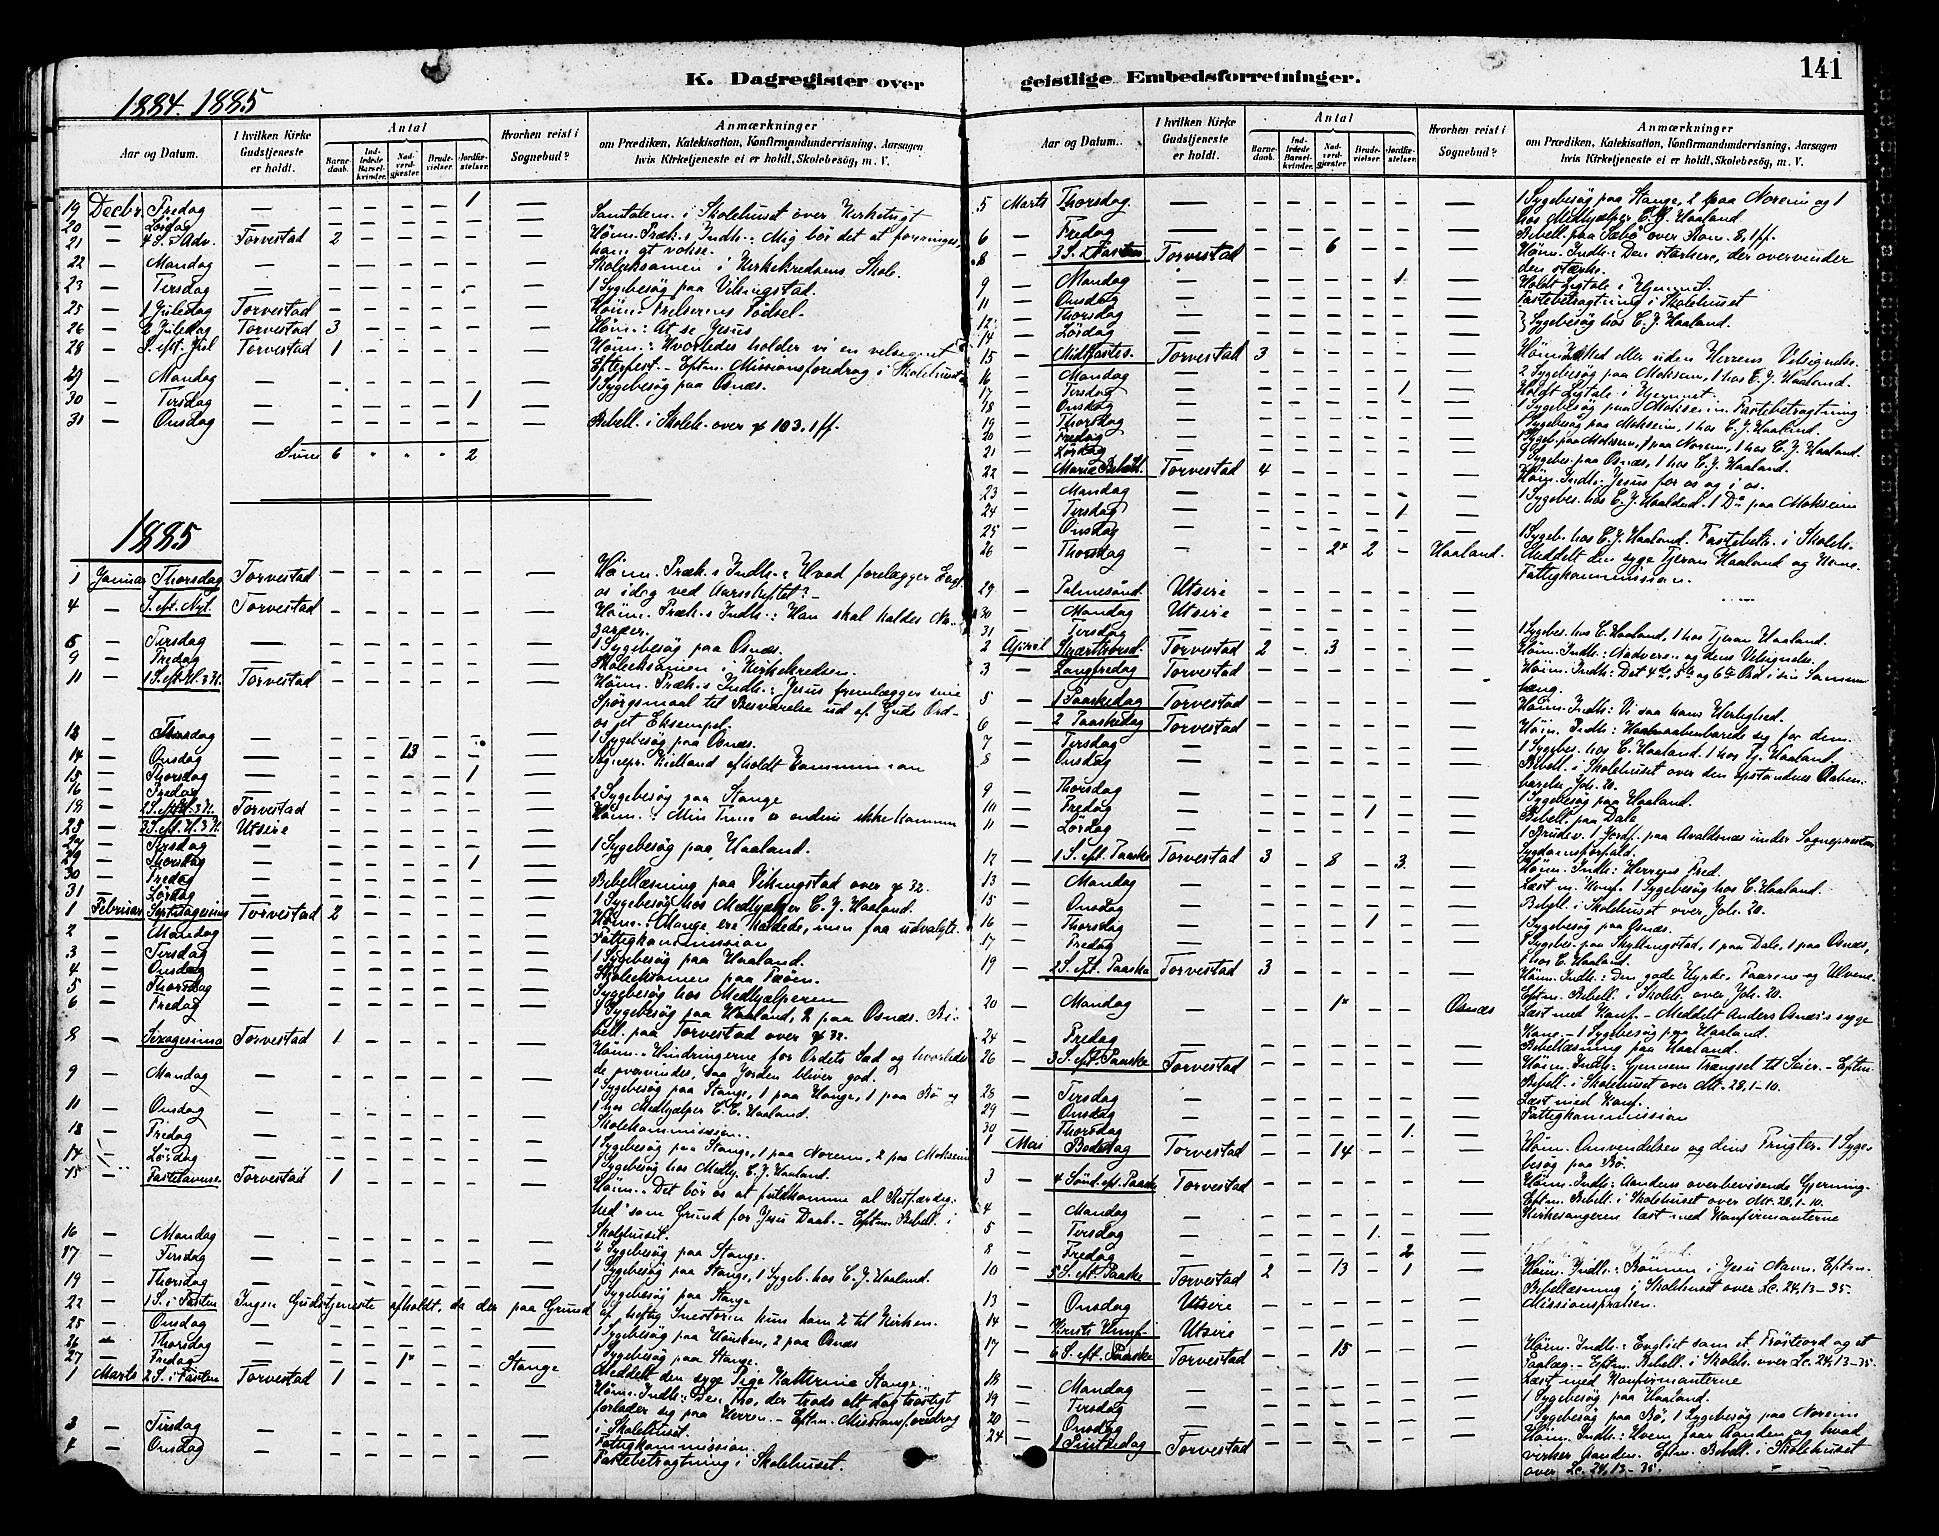 K. Dagregister over geistlige Embedsforretninger.
141
1884. 1885
Aar og Datum.
I hvilken Kirke Gudstjeneste er holdt.
Antal
Barnedaab.
Indledede Barselkvinder.
Nadverdgjæster.
Brudevielser.
Jordfæstelser.
Hvorhen reist i Sognebud?
Anmærkninger
om Prædiken, Katekisation, Konfirmandundervisning, Aarsagen
hvis Kirketjeneste ei er holdt, Skolebesøg, m. V.
19 Decbr Fredag — 1 — Samtalem. i Skolehuset over Kirketugt
20 — Lørdag
21 — 4 S. i Adv. Torvestad 2 — Høim. Præk.s Indh.: Mig bør det at forringes,
ham at vokse.
22 — Mandag — Skoleksamen i Kirkekredsens Skole.
23 — Tirsdag — 1 Sygebesøg paa Vikingstad.
25 — 1 Juledag Torvestad — Høim. Frelserens Fødsel.
26 — 2 Juledag Torvestad 3 — Høim.: At se Jesus
28 — S. eft. Jul Torvestad 1 — Høim.: Hvorledes holder vi en velsignet
Efterfest. — Eftm. Missionsforedrag i Skolehuset
29 — Mandag — 1 Sygebesøg paa Osnæs.
30 — Tirsdag — 1
31 — Onsdag — Bibell. i Skoleh. over ψ 103. 1 ff.
Sum 6 " " " 2
1885
1 Januar Thorsdag Torvestad — Høim. Præk.s Indh.: Hvad forelægger
os idag ved Aarsskiftet? —
4 — S. eft. Nyt. Torvestad — Høim. Præk.s Indh.: Han skal kaldes Na-
zaræer.
6 — Tirsdag — 1 Sygebesøg paa Osnæs.
9 — Fredag — Skoleksamen i Kirkekredsen.
11 — 1 S. eft. H. 3 K. Torvestad — Høim. Præk.s Indh.: Jesus fremlægger sine
Spørgsmaal til Besvarelse ud af Guds Ord —
os et Eksempel.
13 — Tirsdag — 1 Sygebesøg paa Osnæs.
14 — Onsdag — 13 — Sognepr. Kielland afholdt Kommunion
15 — Thorsdag — 1
16 — Fredag — 2 Sygebesøg paa Stange
18 — 2 S. eft. H. 3 K. Torvestad — Høim.: Min Time er endnu ikke kommen
25 — 3 S. eft. H. 3 K. Utsire
27 — Tirsdag — 1 Sygebesøg paa Haaland.
29 — Thorsdag — 1
30 — Fredag — Bibellæsning paa Vikingstad over ψ 32.
31 — Lørdag — 1 Sygebesøg hos Medhjælper C. J. Haaland.
1 Februar Septuagesima Torvestad 2 — Høim.: Mange ere kaldede, men faa udvalgte.
2 — Mandag — Fattigkommission
3 — Tirsdag — 1 Sygebesøg paa Haaland.
4 — Onsdag — Skoleksamen paa
5 — Thorsdag — Sygebesøg hos Medhjælperen
6 — Fredag — 1 Sygebesøg paa Haaland, 2 paa Osnæs. Bi-
bell. paa Torvestad over ψ 32.
8 — Sexagesima Torvestad 1 — Høim. — Hindringerne for Ordets Sæd og hvorledes
de overvindes, saa Jorden bliver god.
9 — Mandag — 1 Sygebesøg paa Stange, 1 paa Hauge, 1 paa Bø og
1 hos Medhjælper C. C. Haaland.
11 — Onsdag — Skolekommission.
13 — Fredag — 1 Sygebesøg paa Stange, 1 paa Noreim, 2 paa Mokseim
14 — Lørdag — 1 Sygebesøg hos Medhj. C. J. Haaland.
15 — Fastelavnss. Torvestad 1 — Høim.: Det bør os at fuldkomme al Retfærdig-
hed som Grund for Jesu Daab. — Eftm. Bibell. i
Skolehuset.
16 — Mandag — 2 Sygebesøg paa Stange.
17 — Tirsdag — 1 Sygebesøg paa Stange, 1 Sygeb. hos C. J. Haaland.
19 — Thorsdag — 1 Sygebesøg paa Stange
22 — 1 S. i Fasten Ingen Gudstjeneste afholdt, da der paa Grund
af heftig Snestorm kun kom 2 til Kirken.
25 — Onsdag — 1 Sygebesøg paa Hausken, 2 paa Osnæs
26 — Thorsdag — 1 Sygebesøg paa Stange.
27 — Fredag — 1* — Stange Meddelt den syge Pige Katterina Stange.
1 Marts 2 S. i Fasten Torvestad 1 — Høim. Indh.: Den Tro, der trods alt dog trøstigt
forlader sig paa Herren. — Eftm. Missionsforedrag
i Skolehuset.
3 — Tirsdag — Fattigkommission.
4 — Onsdag — Fastebetragtning i Skolehuset.
Aar og Datum.
I hvilken Kirke Gudstjeneste er holdt.
Antal
Barnedaab.
Indledede Barselkvinder.
Nadverdgjæster.
Brudevielser.
Jordfæstelser.
Hvorhen reist i Sognebud?
Anmærkninger
om Prædiken, Katekisation, Konfirmandundervisning, Aarsagen
hvis Kirketjeneste ei er holdt, Skolebesøg, m. V.
5 Marts Thorsdag — 1 Sygebesøg paa Stange, 2 paa Noreim og 1
hos Medhjælper C. J. Haaland.
6 — Fredag — Bibell. paa Sæbø over Rom. 8, 1 ff.
8 — 3 S. i Fasten Torvestad 6 — Høim. Indh.: Den stærkere, der overvinder
den stærke.
9 — Mandag — 1 — Holdt Ligtale i Hjemmet.
11 — Onsdag — Fastebetragtning i Skolehuset
12 — Thorsdag
14 — Lørdag — } Sygebesøg hos C. J. Haaland.
15 — Midfastes. Torvestad 3 — Høim. Med eller uden Herrens Velsignelse.
16 — Mandag — 2 Sygebesøg paa Mokseim, 1 hos C. J. Haaland.
17 — Tirsdag — 1 — Holdt Ligtale i Hjemmet.
18 — Onsdag — 1 Sygebesøg paa Mokseim. Fastebetragtning
19 — Thorsdag — 1 Sygebesøg paa Mokseim, 1 hos C. J. Haaland.
20 — Fredag — 1 Sygeb. paa Mokseim, 1 paa Noreim, 1 hos C. J. Haaland.
21 — Lørdag — Sygebes. paa Osnæs, 1 hos C. J. Haaland.
22 — Mariæ Bebud. Torvestad 4 — Høim. Indh. Jesus for os og i os.
23 — Mandag — 1 Sygebes. hos C. J. Haaland. 1 Do paa Mokseim
24 — Tirsdag — 1
25 — Onsdag — 1 Sygeb. hos C. J. Haaland. Fastebetr. i Skoleh.
26 — Thorsdag — 2* 2 — Haaland. Meddelt den syge Tjeran Haaland og Kone.
Fattigkommission.
29 — Palmesønd. Utsire
30 — Mandag Utsire
31 — Tirsdag — 1 Sygebes. hos C. Haaland, 1 hos Tjeran Haaland.
2 April Skærthorsd. Torvestad 2 — 3 — Høim. Indh.: Nadveren og dens Velsignelse.
3 — Langfredag Torvestad — Høim. Indh: Det 4de, 5te og 6te Ord i sin Sammen-
hæng.
5 — 1 Paaskedag Torvestad — Høim. Indh: Vi saa hans Herlighed.
6 — 2 Paaskedag Torvestad — Høim. Indh: Han aabenbarede sig for dem.
7 — Tirsdag — 1 Sygebes. hos C. Haaland. 1 hos Tj. Haaland.
8 — Onsdag — Bibell. i Skolehuset over den opstandnes Aaben-
barelse Joh. 20.
9 — Thorsdag — 1 Sygebesøg paa Haaland.
10 — Fredag — 1 — Bibell. paa Dale
11 — Lørdag — 1 Brudev. 1 Jordf. paa Avaldsnæs under Sognepræsten
Sygdomsforfald.
12 — 1 S. eft. Paaske Torvestad 3 — 8 — 3 — Høim. Indh: Herrens Fred.
13 — Mandag — Læst m. Konf. 1 Sygebesøg hos C. Haaland.
15 — Onsdag — Bibell. i Skolehuset over Joh. 20.
16 — Thorsdag — 1 — 1 Sygebesøg paa Osnæs.
17 — Fredag — 1 Sygebes. paa Skyttingstad, 1 paa Dale, 1 paa Osnæs,
1 hos C. Haaland.
19 — 2 S. eft. Paaske Torvestad 3 — Høim. Indh.: Den gode Hyrde, Faarene og Ulvene.
Eftm. Bibell. i Skoleh. over Joh. 20.
20 — Mandag — 1* — Osnæs Læst med Konf. — Meddelt Anders Osnæs's syge
Kone. — 1 Sygebesøg paa Haaland.
24 — Fredag — Bibellæsning paa Haaland.
26 — 3 S. eft. Paaske Torvestad — Høim. Indh: Gjennem Trængsel til Seier. — Eftm.
Bibell. i Skolehuset over Mt. 28, 1–10.
28 — Tirsdag — Læst med Konf.
29 — Onsdag — Fattigkommission
30 — Thorsdag — 1
1 Mai Bededag Torvestad 14 — Høim. Omvendelsen og dens Frugter. 1 Syge-
besøg paa Bø.
3 — 4 Sønd. eft. Paaske Torvestad — Høim. Indh: Aandens overbevisende Gjerning.
Eftm. Bibell. i Skolehuset over Mt. 28, 1–10.
4 — Mandag — Kirkesangeren læst med Konfirmanterne
5 — Tirsdag — 1
8 — Fredag — 2
10 — 5 S. eft. Paaske Torvestad 2 — 13 — 1 — Høim. Indh: Bønnen i Jesu Navn. Eftm.
Bibellæsning i Skolehuset over Lc. 24, 13–35.
13 — Onsdag Utsire — Missionsprækn.
14 — Kristi Himf. Utsire
17 — 6 S. eft. Paaske Torvestad 15 — Høim. Indh:
Eftm. Bibell. i Skoleh. over Lc. 24, 13–35.
18 — Mandag — Læst med Konfirmanterne
19 — Tirsdag — 1 Sygebesøg paa Haaland.
20 — Onsdag — 1 Sygebesøg paa Bø, 1 Sygebesøg paa Noreim
24 — 1 Pintsedag Torvestad — Høim. Indh: Hvem faar Aanden og hvad
virker Aanden. Eftm. Bibell. i Skolehuset
over Lc. 24, 13–35.